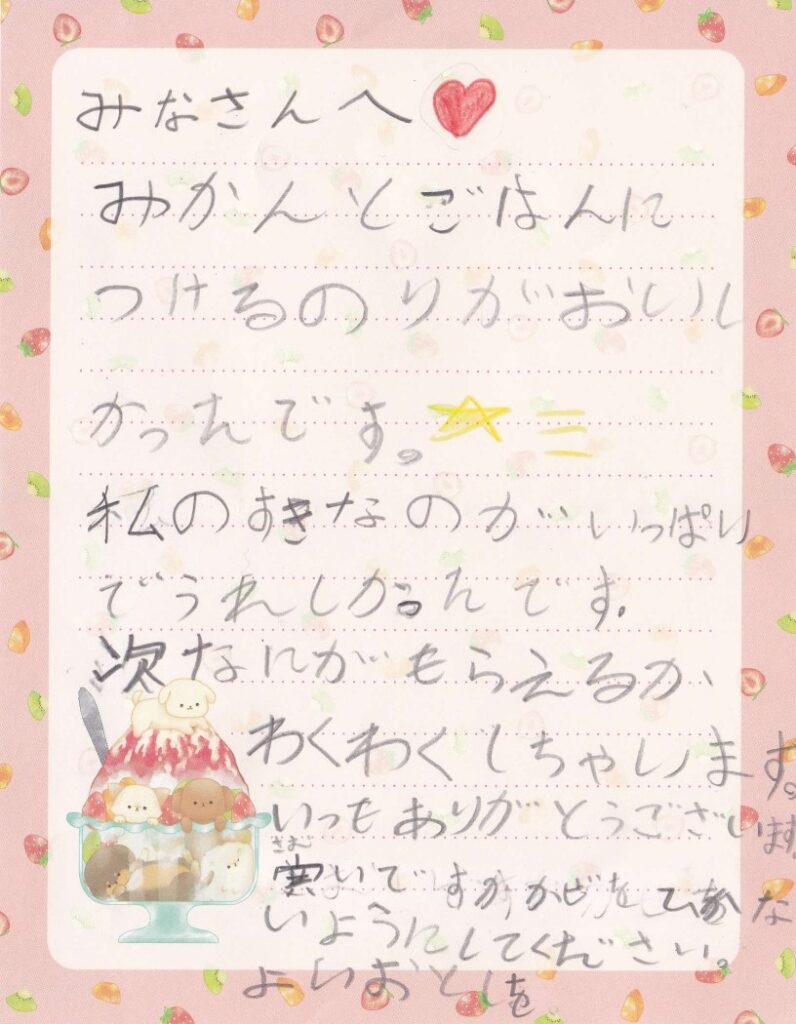 みなさんへ
みかんとごはんに
つけるのりがおいし
かったです。
私のすきなのがいっぱい
でうれしかったです。
次なにがもらえるか、
わくわくしちゃいます。
いつもありがとうございます
さむ
寒いですがかぜをひかな
いようにしてください。
よいおとしを